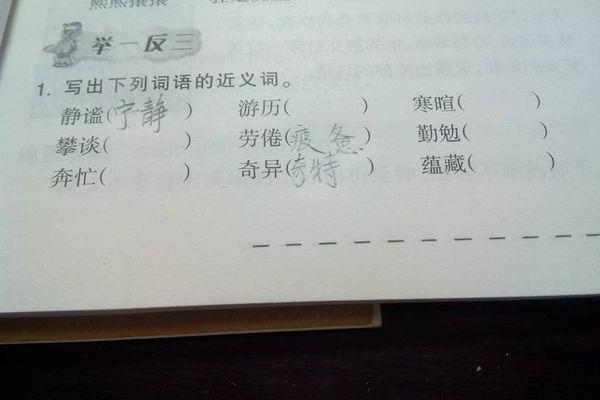 熊熊振振
举一反三
1. 写出下列词语的近义词。
静谧(宁静) 游历( ) 寒暄( )
攀谈( ) 劳倦(疲惫) 勤勉( )
奔忙( ) 奇异(奇特) 蕴藏( )